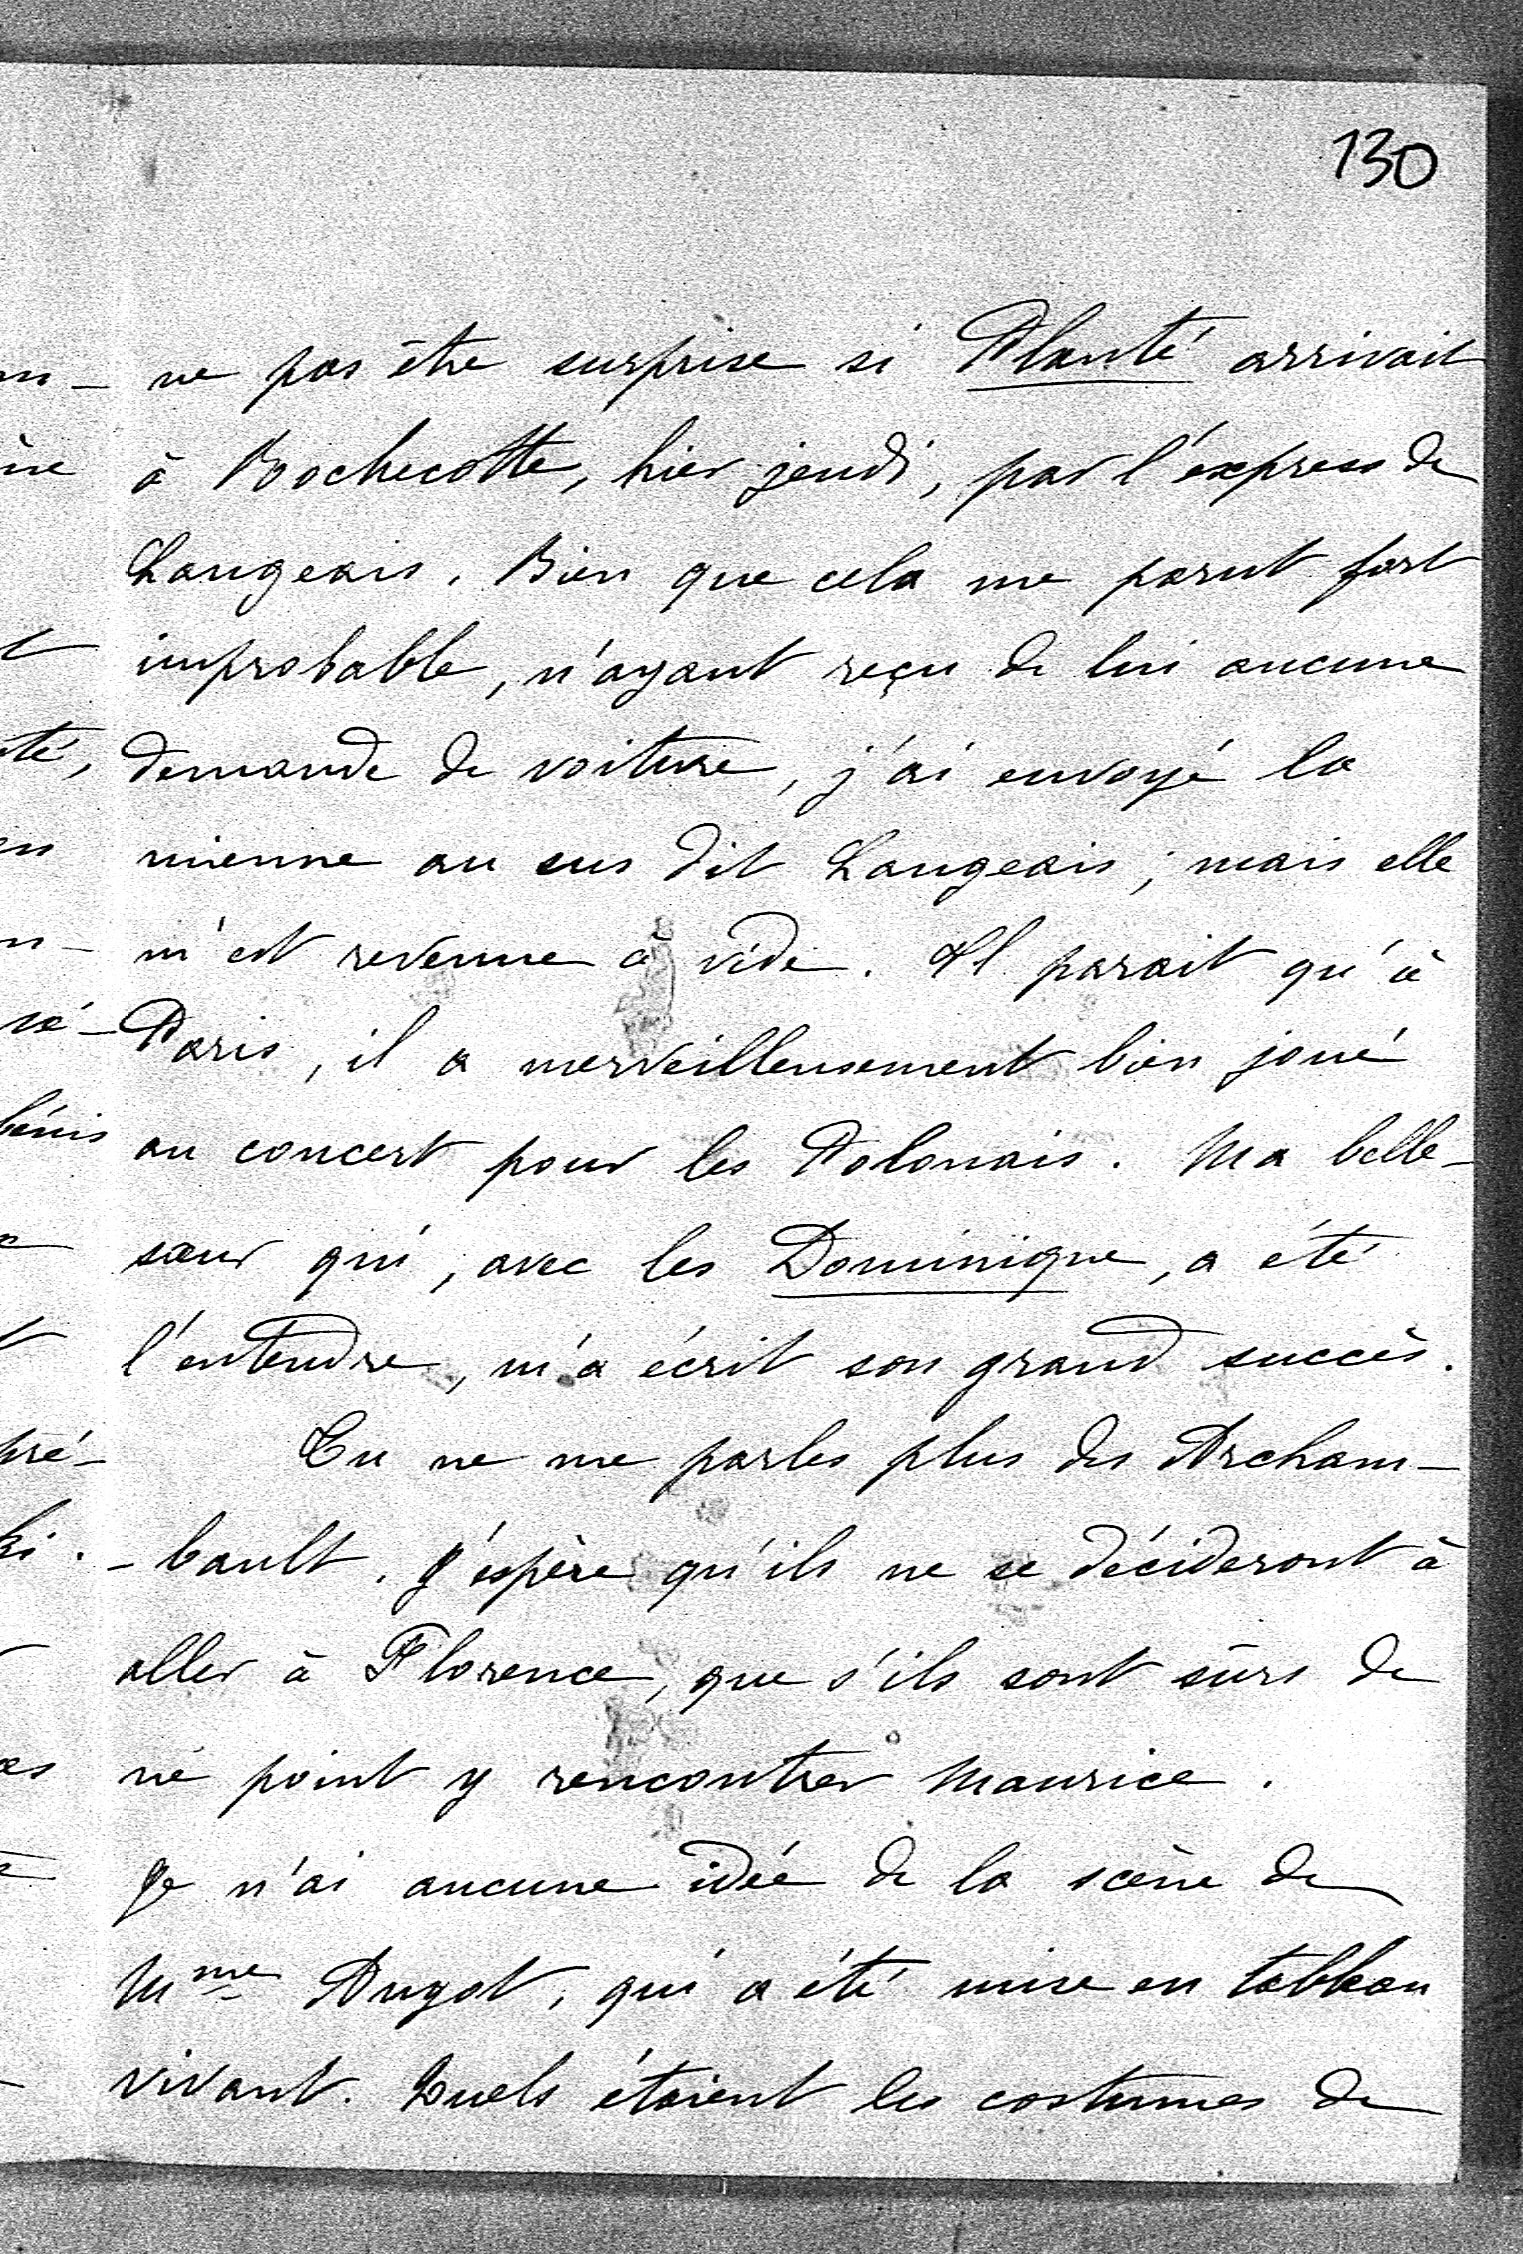 130
ne pas être surprise si Planté arrivait
à Rochecotte, hier jeudi, par l'express de
Langeais. Bien que cela me parut fort
improbable, n'ayant reçu de lui aucune
demande de voiture, j'ai envoyé la
mienne au sus dit Langeais ; mais elle
m'est revenue à vide. Il parait qu'à
Paris, il a merveilleusement bien joué
au concert pour les Polonais. Ma belle-
sœur qui, avec les Dominique, a été
l'entendre, m'a écrit son grand succès.
Tu ne me parles plus des Archam-
-bault. J'espère qu'ils ne se décideront à
aller à Florence, que s'ils sont sûrs de
ne point y rencontrer Maurice.
Je n'ai aucune idée de la scène de
Mme Angot, qui a été mise en tableau
vivant. Quels étaient les costumes de